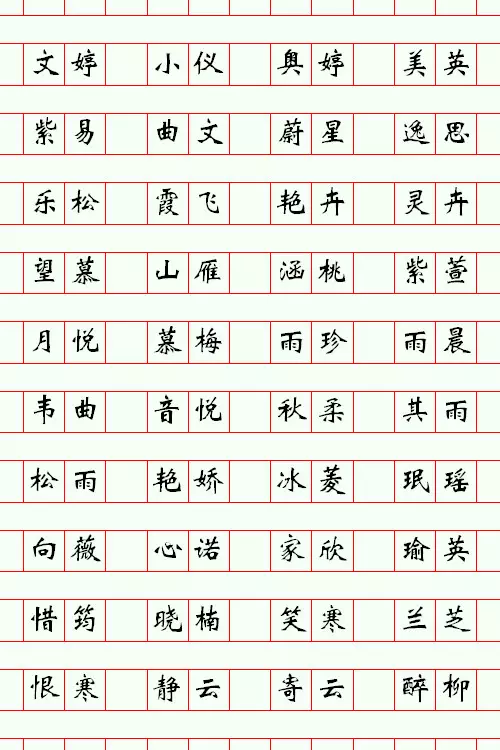 文婷 小仪 奥婷 美英
紫易 曲文 蔚星 逸思
乐松 霞飞 艳卉 灵卉
望慕 山雁 涵桃 紫萱
月悦 慕梅 雨珍 雨晨
韦曲 音悦 秋柔 其雨
松雨 艳娇 冰菱 珉瑶
向薇 心诺 家欣 瑜英
惜筠 晓楠 笑寒 兰芝
恨寒 静云 寄云 醉柳